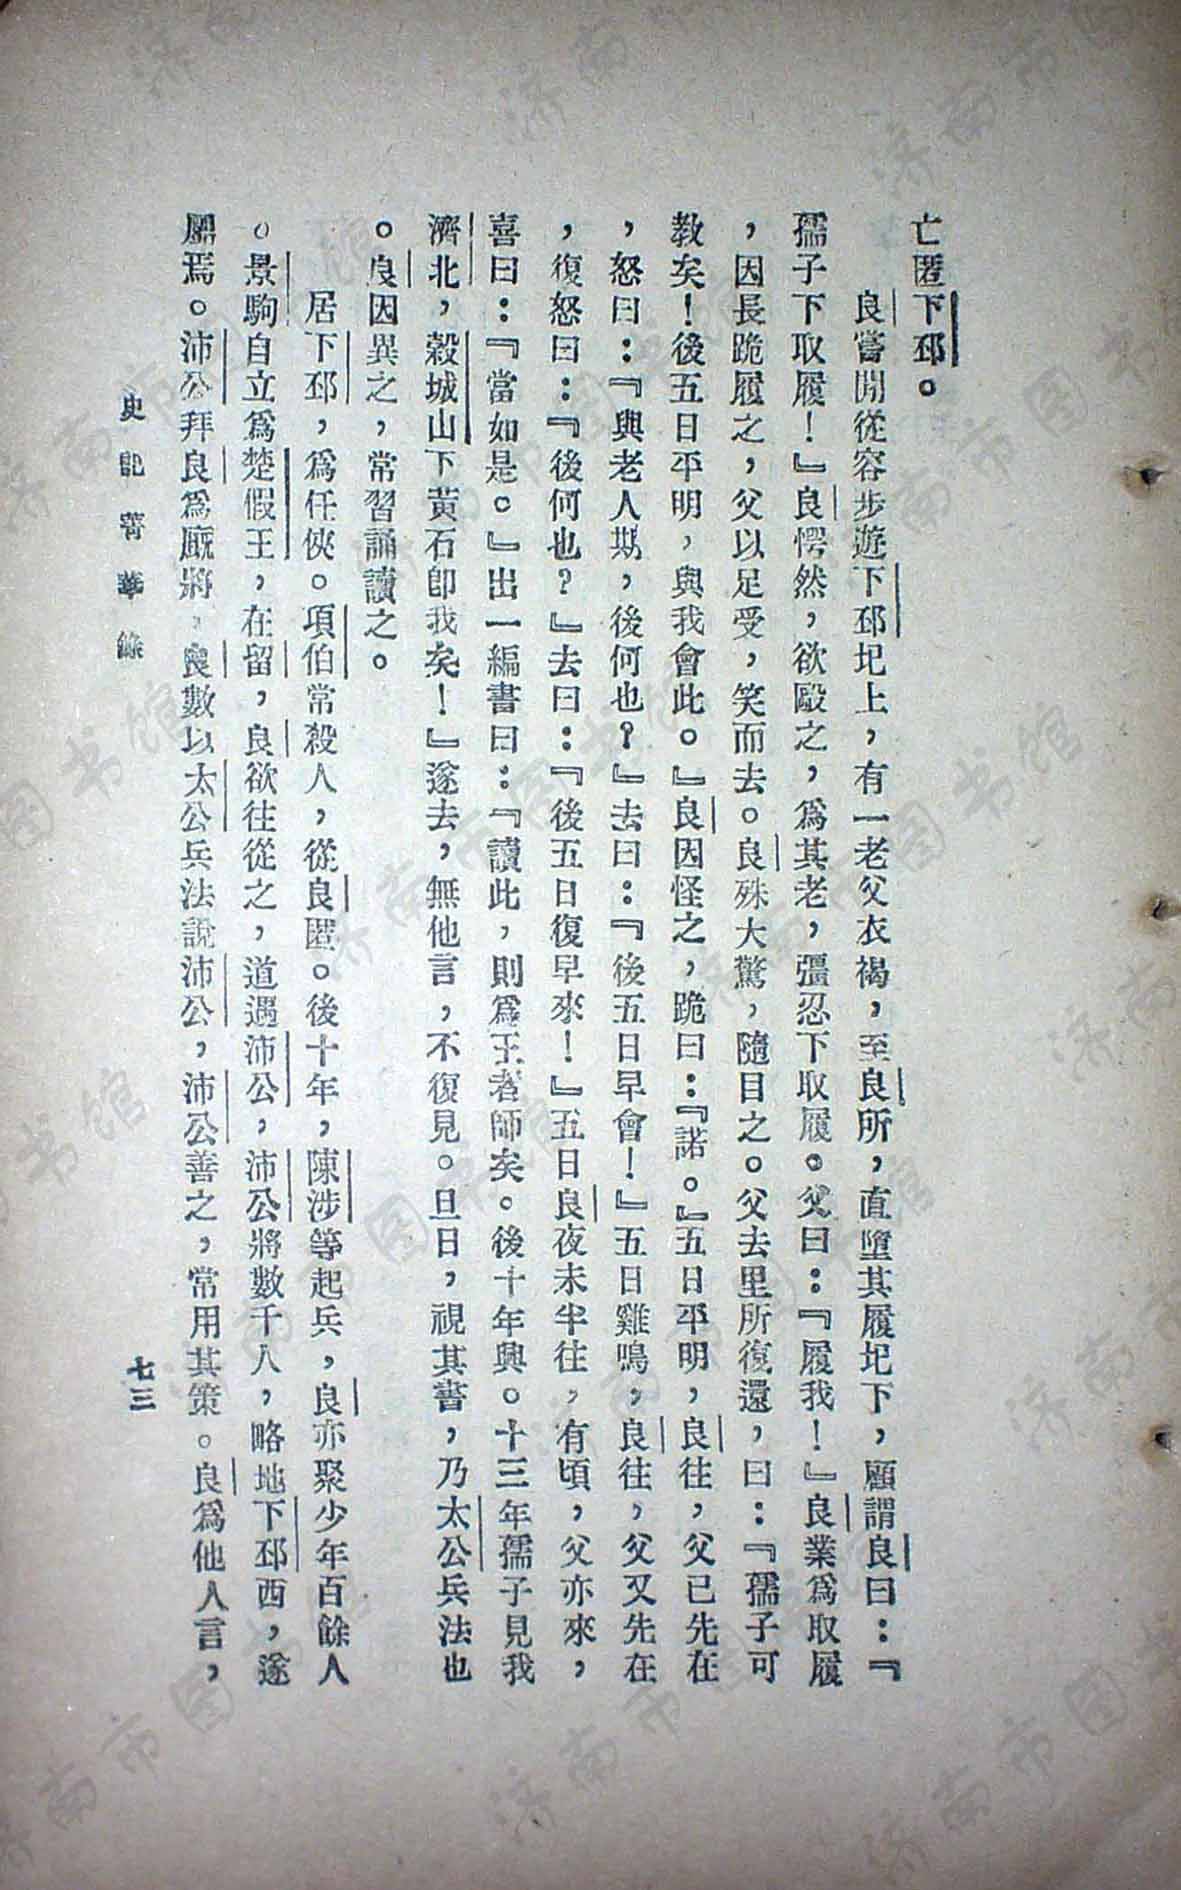 亡匿下邳。
良嘗閒從容步遊下邳圯上，有一老父衣褐，至良所，直墮其履圯下，顧謂良曰：『
孺子下取履！』良愕然，欲毆之，爲其老，彊忍下取履。父曰：『履我！』良業爲取履
，因長跪履之，父以足受，笑而去。良殊大驚，隨目之。父去里所復還，曰：『孺子可
教矣！後五日平明，與我會此。』良因怪之，跪曰：『諾。』五日平明，良往，父已先在
，怒曰：『與老人期，後何也？』去曰：『後五日早會！』五日雞鳴，良往，父又先在
，復怒曰：『後何也？』去曰：『後五日復早來！』五日良夜未半往，有頃，父亦來，
喜曰：『當如是。』出一編書曰：『讀此，則爲王者師矣。後十年興。十三年孺子見我
濟北，穀城山下黃石卽我矣！』遂去，無他言，不復見。旦日，視其書，乃太公兵法也
。良因異之，常習誦讀之。
居下邳，爲任俠。項伯常殺人，從良匿。後十年，陳涉等起兵，良亦聚少年百餘人
。景駒自立爲楚假王，在留，良欲往從之，道遇沛公，沛公將數千人，略地下邳西，遂
屬焉。沛公拜良爲廄將，良數以太公兵法說沛公，沛公善之，常用其策。良爲他人言，
史記菁華錄
七三
济南市图书馆